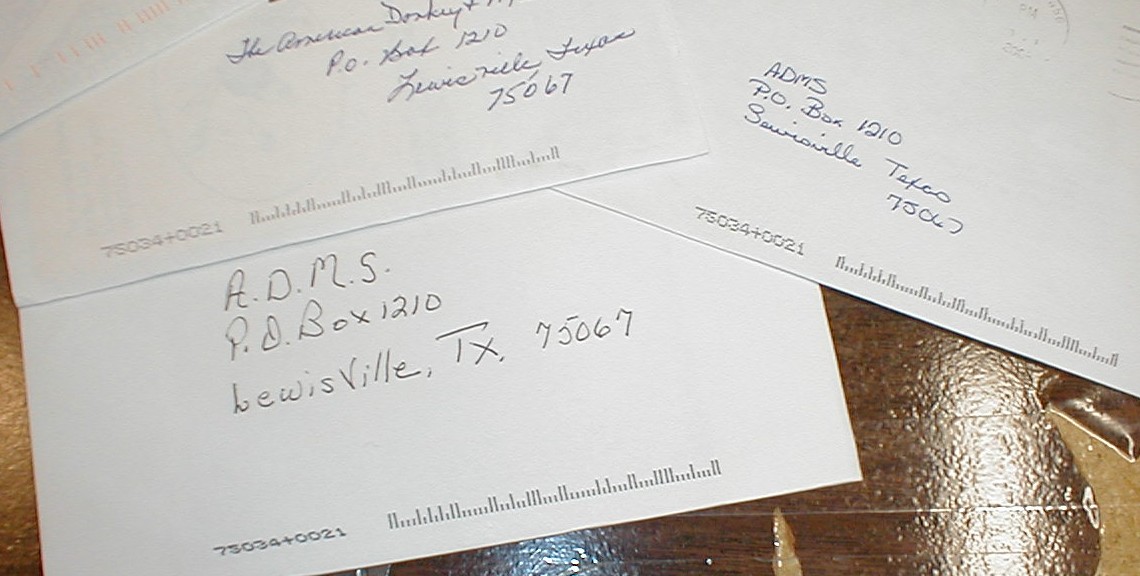 The American Donkey &
P.O. Box 1210
Lewisville Texas
75067
75034+0021
ADMS
P.O. Box 1210
Lewisville Texas
75067
75034+0021
A.D.M.S.
P.O. Box 1210
Lewisville, Tx. 75067
75034+0021